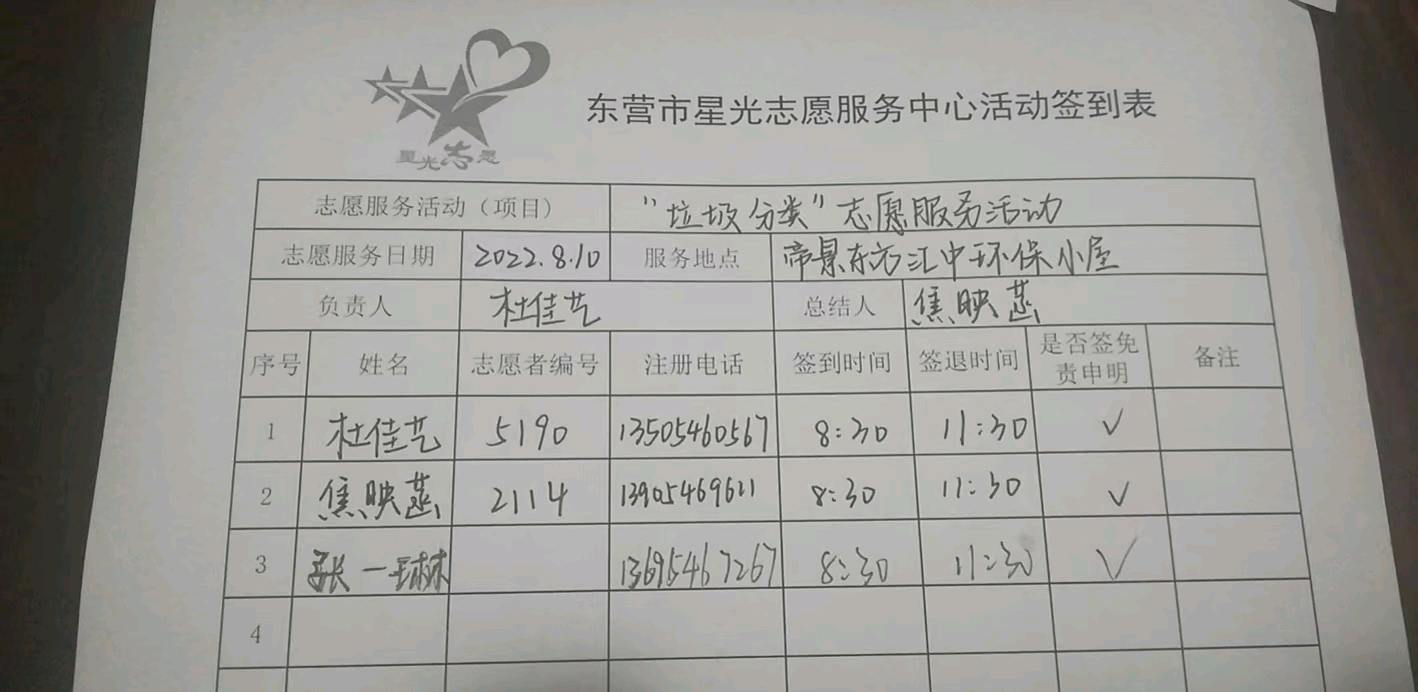 星光志愿
东营市星光志愿服务中心活动签到表
志愿服务活动（项目） “垃圾分类”志愿服务活动
志愿服务日期 2022.8.10 服务地点 帝景东方汇中环保小屋
负责人 杜佳艺 总结人 焦映菡
序号 姓名 志愿者编号 注册电话 签到时间 签退时间 是否签免责申明 备注
1 杜佳艺 5190 13505460567 8:30 11:30 ✓
2 焦映菡 2114 13905469621 8:30 11:30 ✓
3 张一琳 13695467267 8:30 11:30 ✓
4